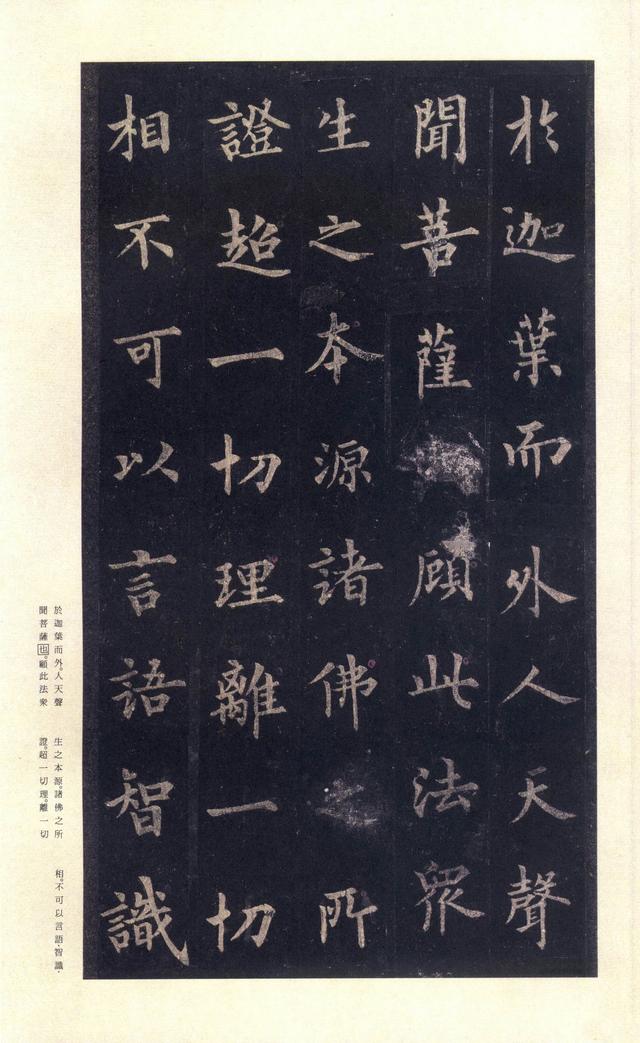 於迦葉而外人天聲
聞菩薩顧此法眾
生之本源諸佛之所
證超一切理離一切
相不可以言語智識
於迦葉而外。人天聲
聞菩薩也。顧此法衆
生之本源。諸佛之所
證。超一切理。離一切
相。不可以言語、智識、